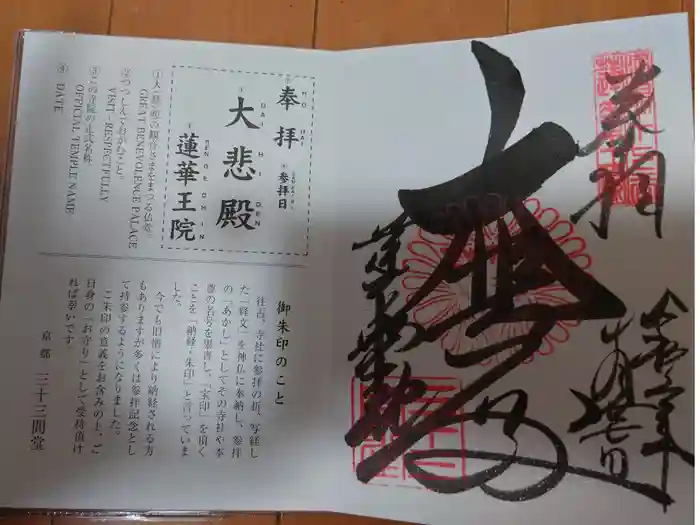 奉拝
HO HAI
参拝日
大悲殿
DAI HI DEN
蓮華王院
RENGE OH IN
①大慈悲の観音さまをまつる仏堂。
GREAT BENEVOLENCE PALACE
②つつしんでおがむこと。
VISIT-RESPECTFULLY
③この寺院の正式名称
OFFICIAL TEMPLE NAME
④ DATE
御朱印のこと
往古、寺社に参拝の折、写経し
た「経文」を神仏に奉納し、参拝
の「あかし」としてその寺社や本
尊の名号を墨書して、「宝印」を頂く
ことを「納経・朱印」と言っていま
した。
今でも旧儀により納経される方
もありますが多くは参拝記念とし
て持参するようになりました。
ご朱印の意義をお含みの上、ご
自身の「お守り」として受持頂け
れば幸いです。
京都 三十三間堂
奉拝
大悲殿
蓮華王院